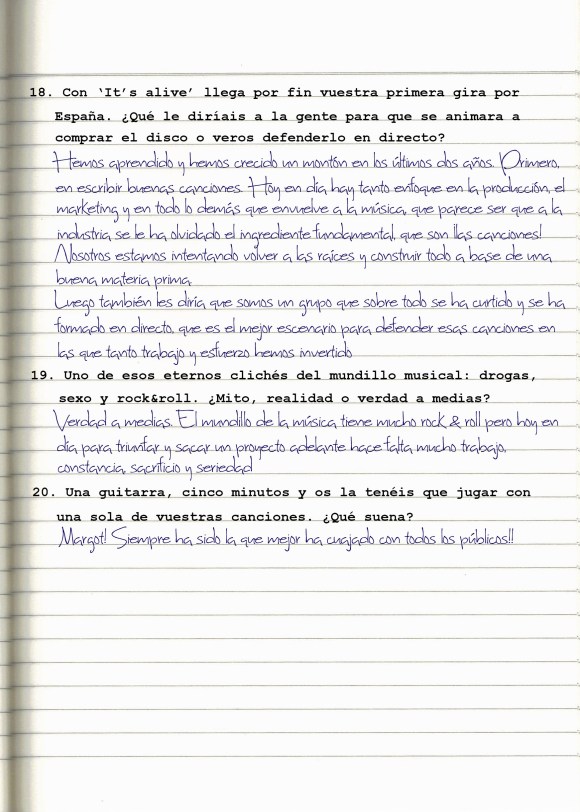 18. Con ‘It’s alive’ llega por fin vuestra primera gira por
España. ¿Qué le diríais a la gente para que se animara a
comprar el disco o veros defenderlo en directo?
Hemos aprendido y hemos crecido un montón en los últimos dos años. Primero,
en escribir buenas canciones. Hoy en día, hay tanto enfoque en la producción, el
marketing y en todo lo demás que envuelve a la música, que parece ser que a la
industria se le ha olvidado el ingrediente fundamental, que son ¡las canciones!
Nosotros estamos intentando volver a las raíces y construir todo a base de una
buena materia prima.
Luego también les diría que somos un grupo que sobre todo se ha curtido y se ha
formado en directo, que es el mejor escenario para defender esas canciones en
las que tanto trabajo y esfuerzo hemos invertido
19. Uno de esos eternos clichés del mundillo musical: drogas,
sexo y rock&roll. ¿Mito, realidad o verdad a medias?
Verdad a medias. El mundillo de la música tiene mucho rock & roll pero hoy en
día para triunfar y sacar un proyecto adelante hace falta mucho trabajo,
constancia, sacrificio y seriedad
20. Una guitarra, cinco minutos y os la tenéis que jugar con
una sola de vuestras canciones. ¿Qué suena?
Margot! Siempre ha sido la que mejor ha cuajado con todos los públicos!!